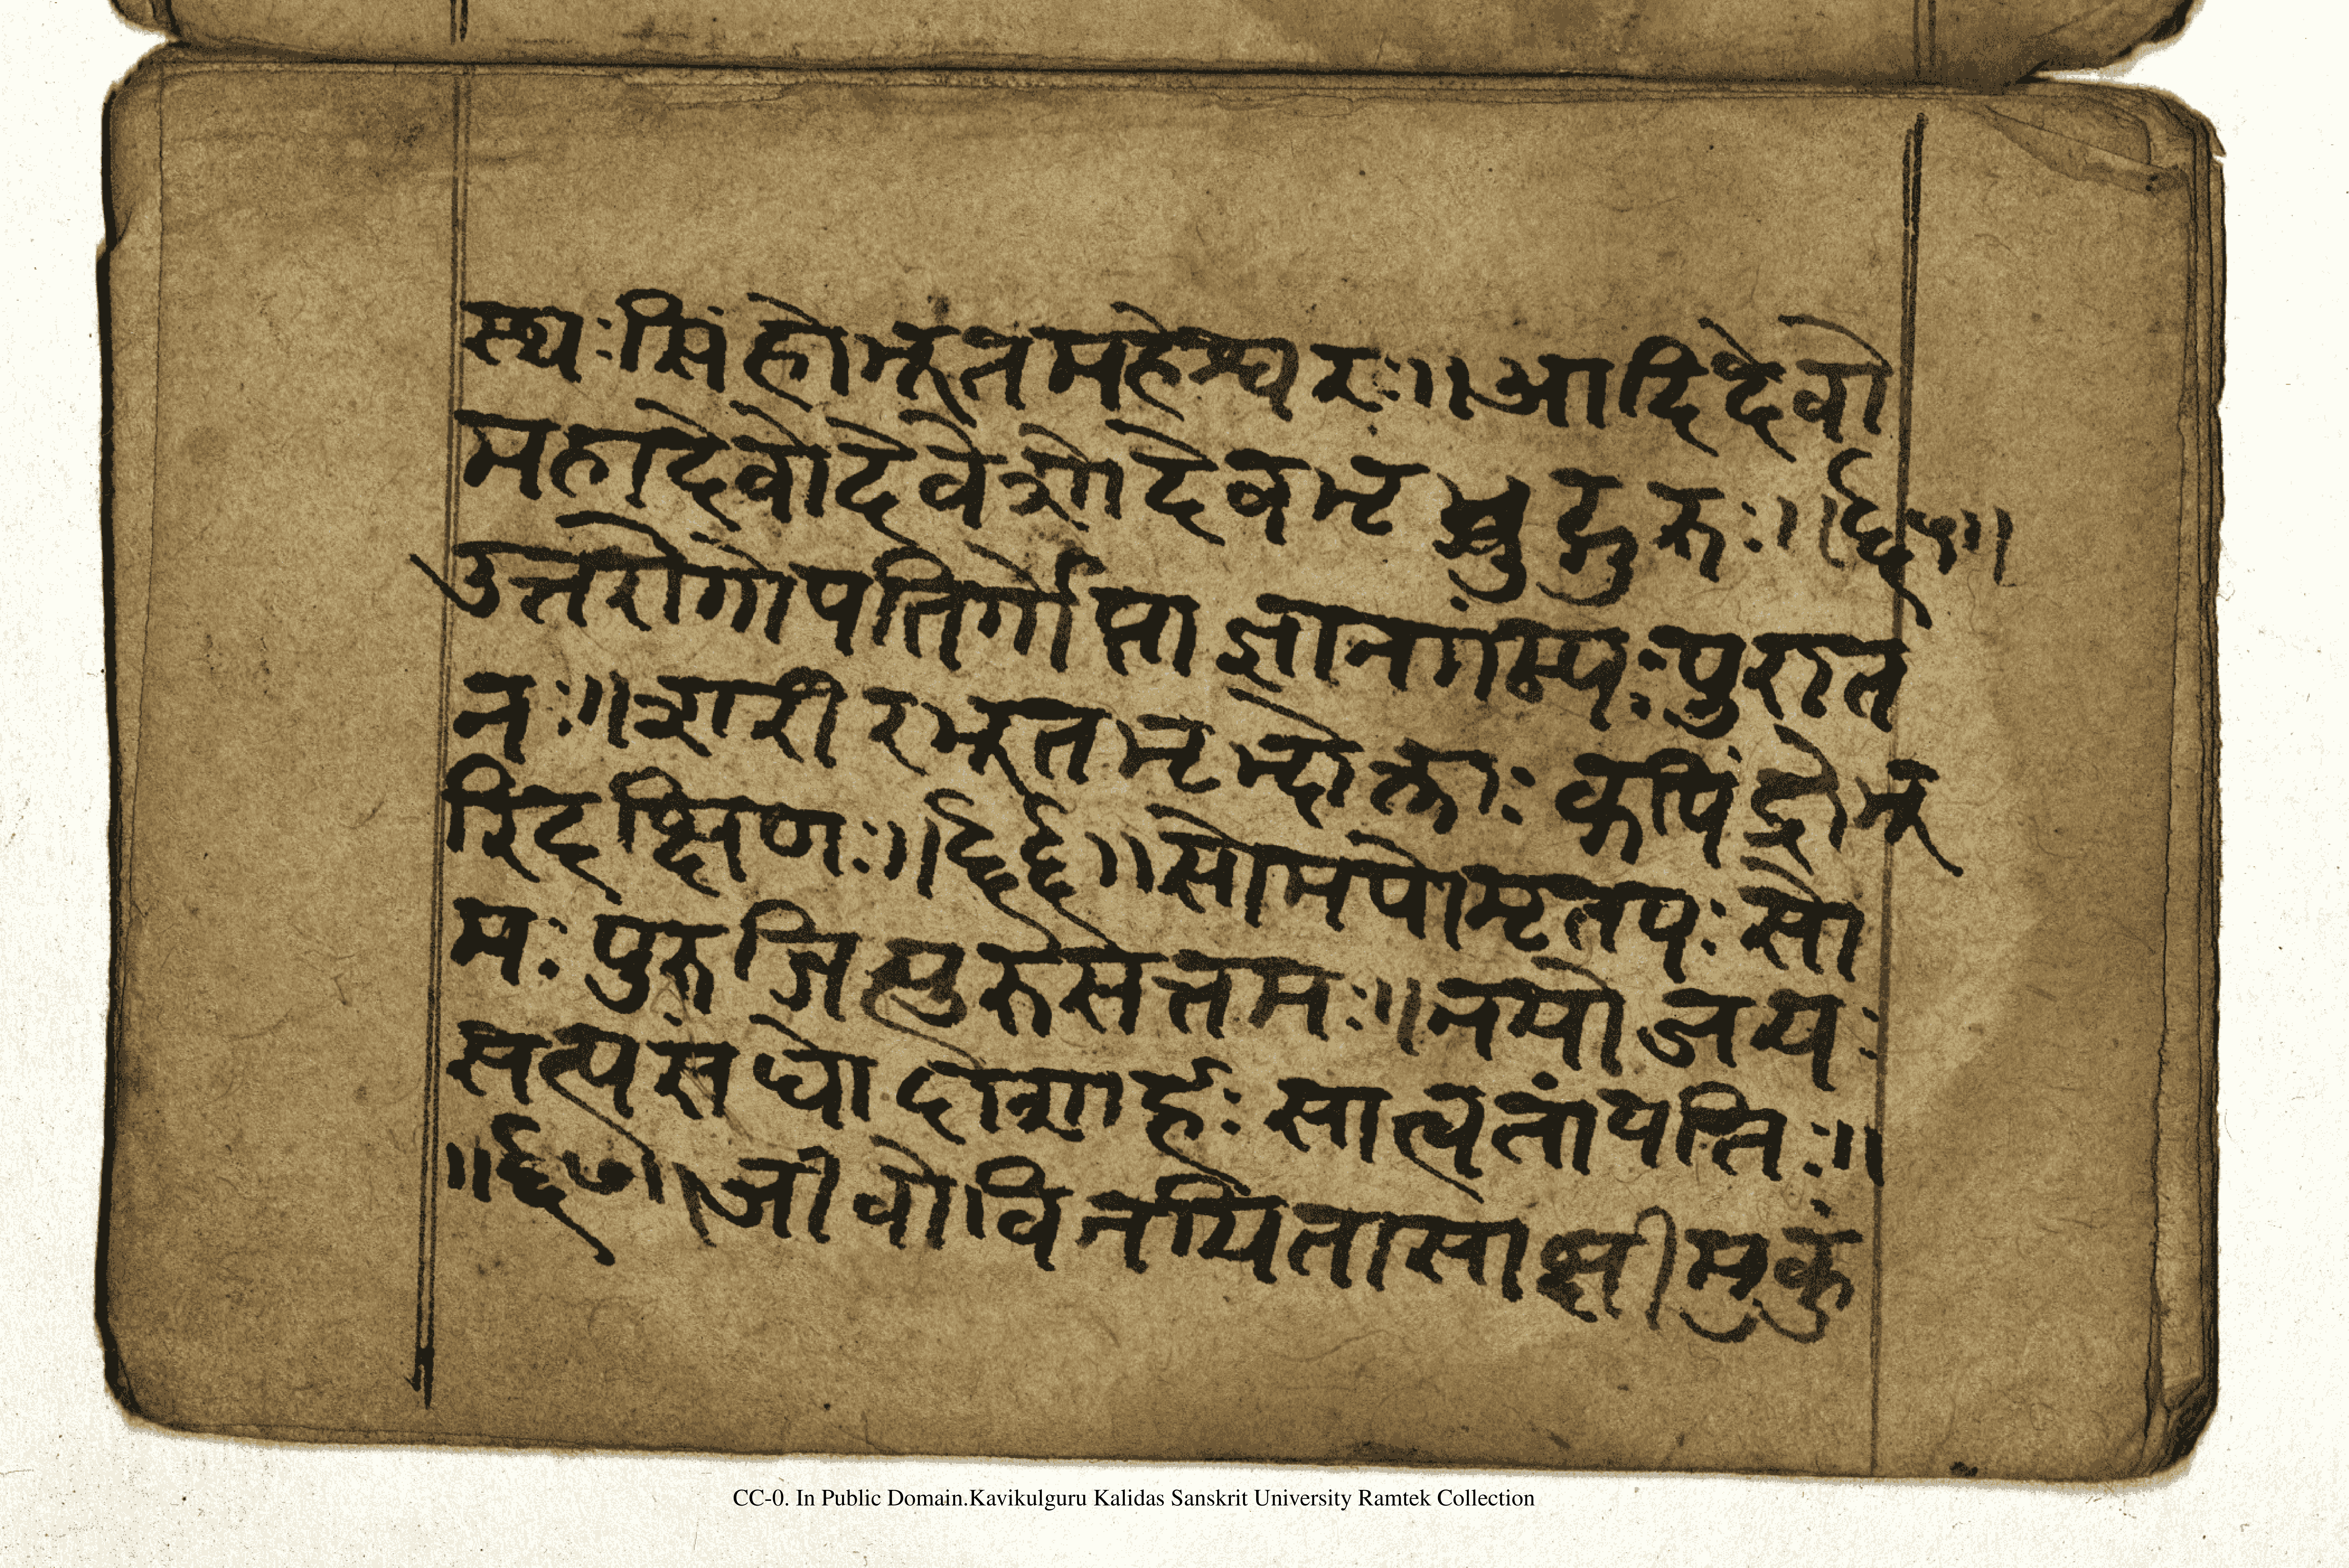 स्थः सिंहोभूतमहेश्वरः ॥ आदिदेवो
महादेवोदेवेशोदेवभृद्गुरुः ॥ ६५ ॥
उत्तरोगोपतिर्गोप्ता ज्ञानगम्यः पुरात
नः ॥ शरीरभूतभृद्भोक्ताः कपिंद्रोभू
रिदक्षिणः ॥ ६६ ॥ सोमपोमृतपः सो
मः पुरुजित्पुरुसत्तमः ॥ नयोजयः
सत्यसंधोदाशार्हः सात्वतांपतिः ॥
॥ ६७ ॥ जीवोविनयितासाक्षीमुकुं
CC-0. In Public Domain.Kavikulguru Kalidas Sanskrit University Ramtek Collection